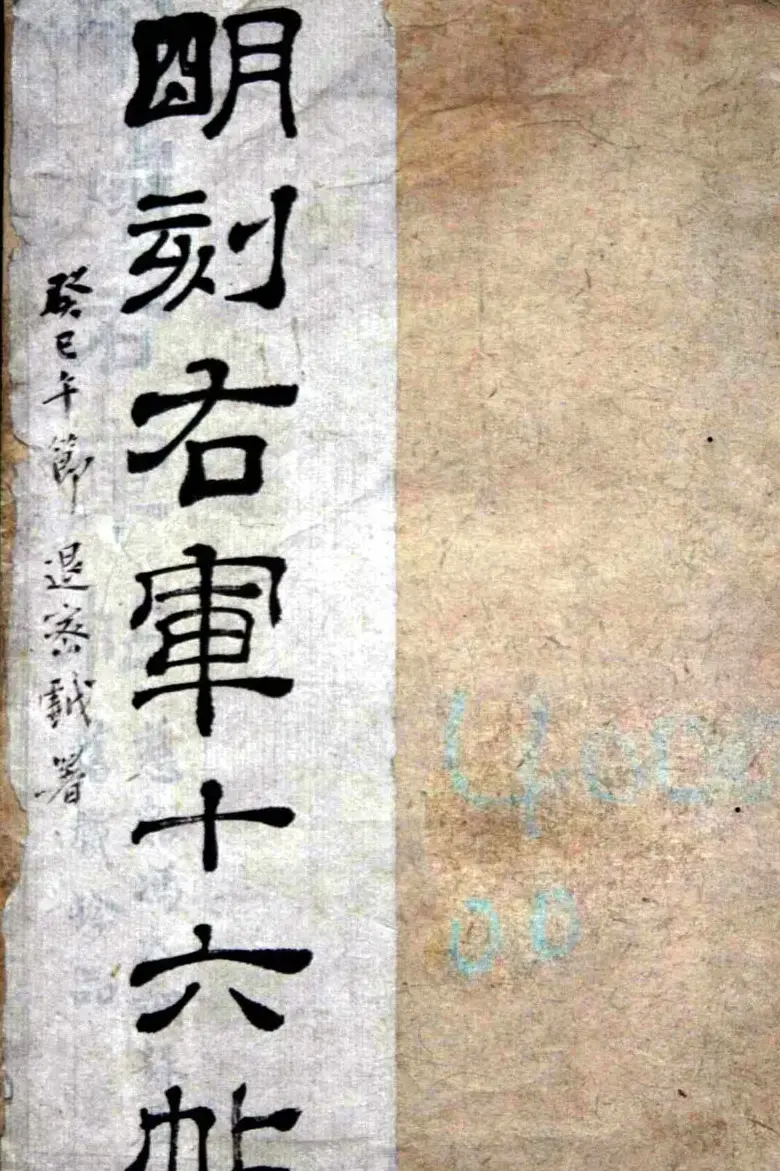 明刻右軍十六帖
癸巳午節退密戲署
4000
00